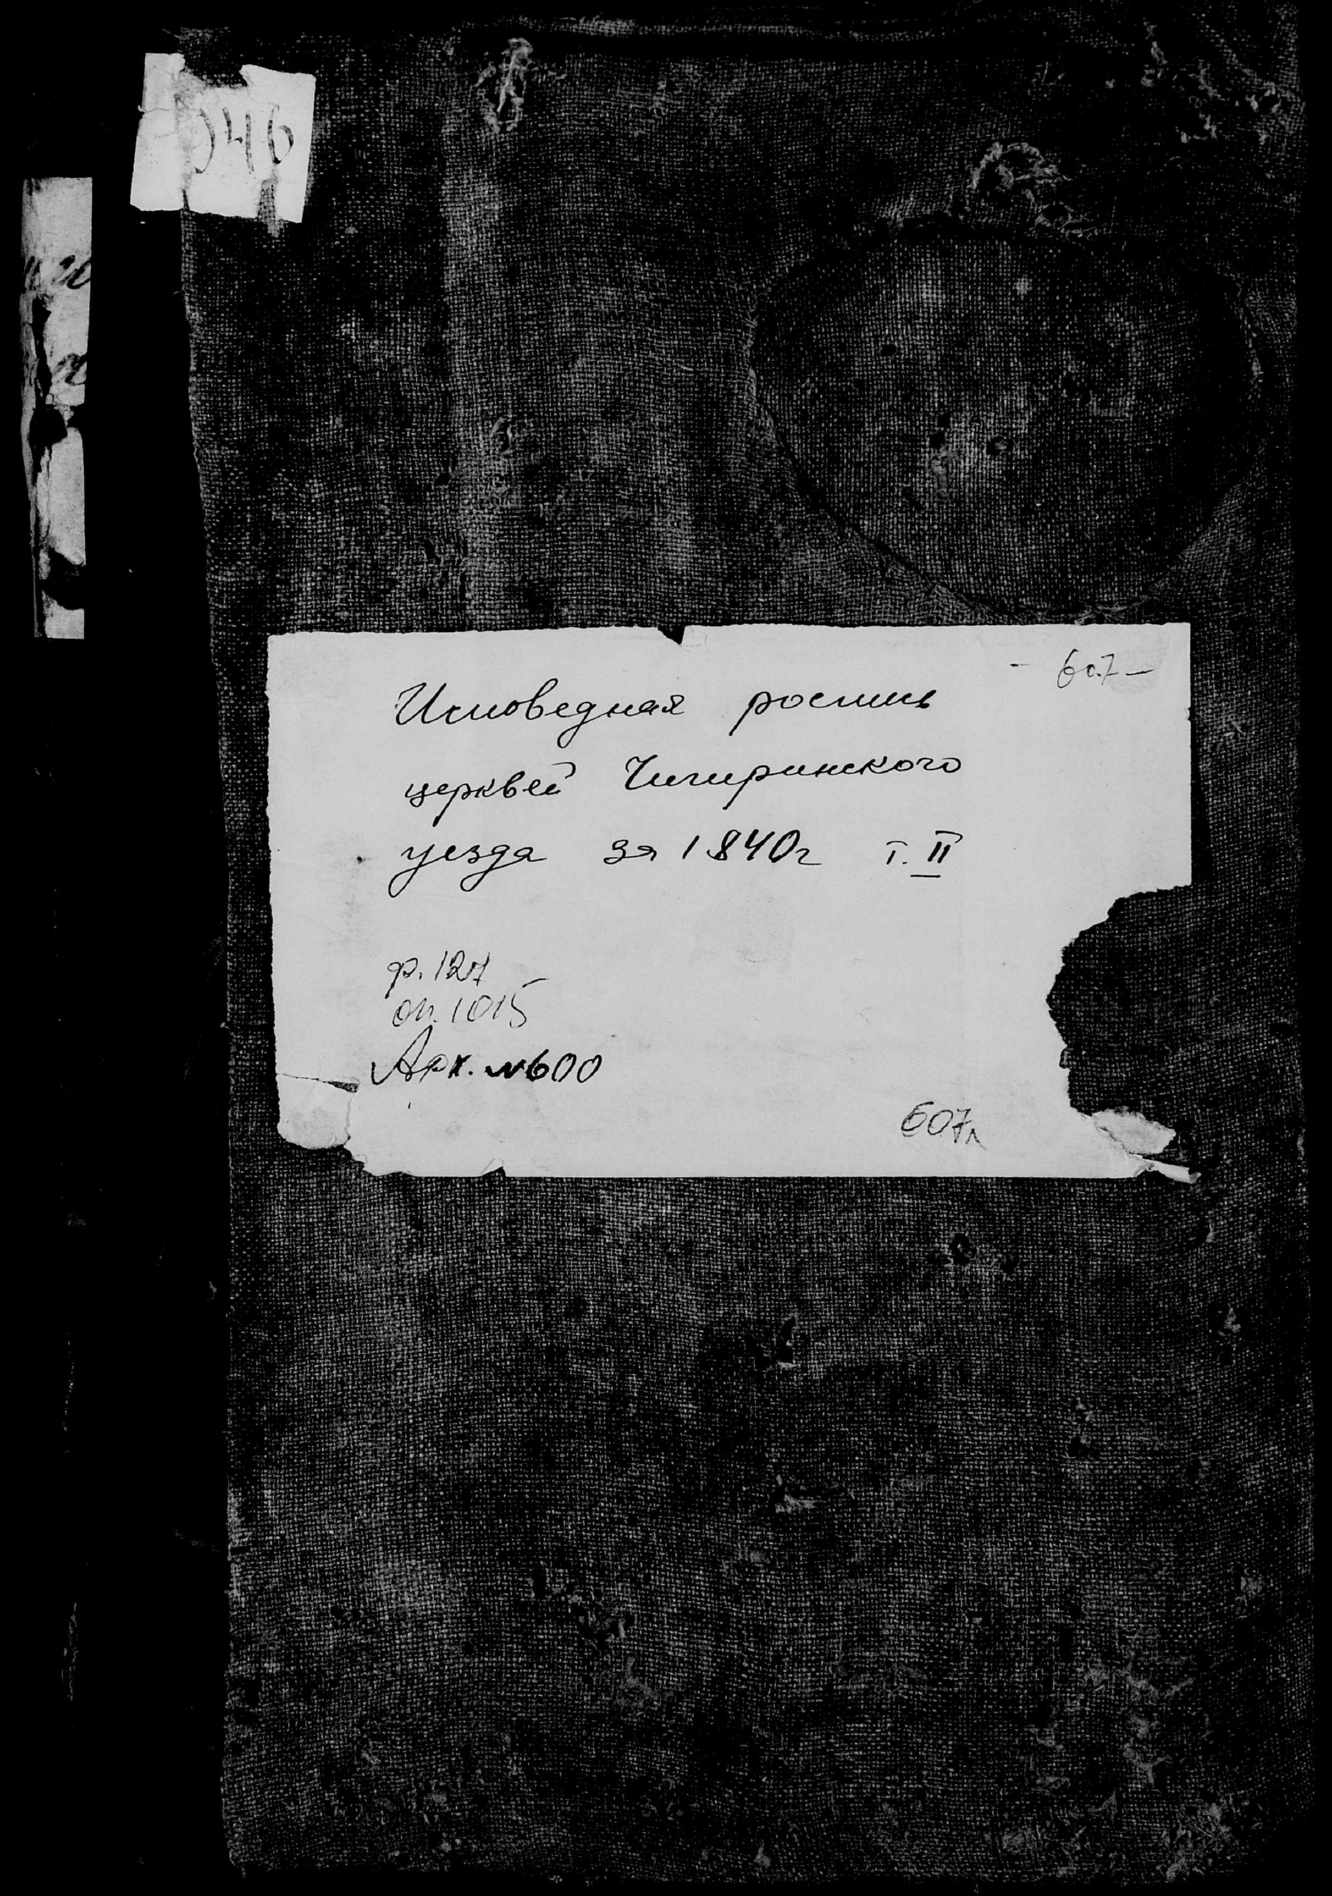 946
- 607 -
Исповедная роспись
церквей Чигиринского
уезда за 1840г т. II
ф. 127
оп. 1015
Арх. №600
607л